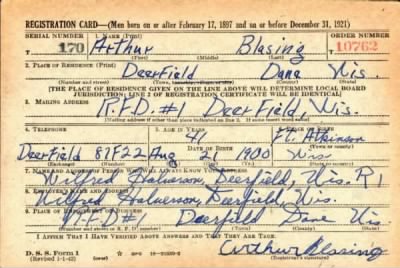 REGISTRATION CARD—(Men born on or after February 17, 1897 and on or before December 31, 1921)
SERIAL NUMBER 1. NAME (Print) ORDER NUMBER
170 Arthur Blasing 10762
(First) (Middle) (Last)
2. PLACE OF RESIDENCE (Print)
Deerfield Dane Wis.
(Number and street) (Town, township, village, or city) (County) (State)
[THE PLACE OF RESIDENCE GIVEN ON THE LINE ABOVE WILL DETERMINE LOCAL BOARD
JURISDICTION; LINE 2 OF REGISTRATION CERTIFICATE WILL BE IDENTICAL]
3. MAILING ADDRESS
R.F.D. #1 Deerfield, Wis.
[Mailing address if other than place indicated on line 2. If same insert word same]
4. TELEPHONE 5. AGE IN YEARS 6. PLACE OF BIRTH
41 Ft. Atkinson
DATE OF BIRTH
Deerfield 87F22 Aug 21 1900 Wis
7. NAME AND ADDRESS OF PERSON WHO WILL ALWAYS KNOW YOUR ADDRESS
Wilfred Halverson, Deerfield, Wis. R1
8. EMPLOYER'S NAME AND ADDRESS
Wilfred Halverson, Deerfield, Wis.
9. PLACE OF EMPLOYMENT OR BUSINESS
R.F.D. #1 Deerfield Dane Wis
(Number and street or R. F. D. number) (Town) (County) (State)
I AFFIRM THAT I HAVE VERIFIED ABOVE ANSWERS AND THAT THEY ARE TRUE.
D. S. S. Form 1
(Revised 1-1-42)
Arthur Blasing